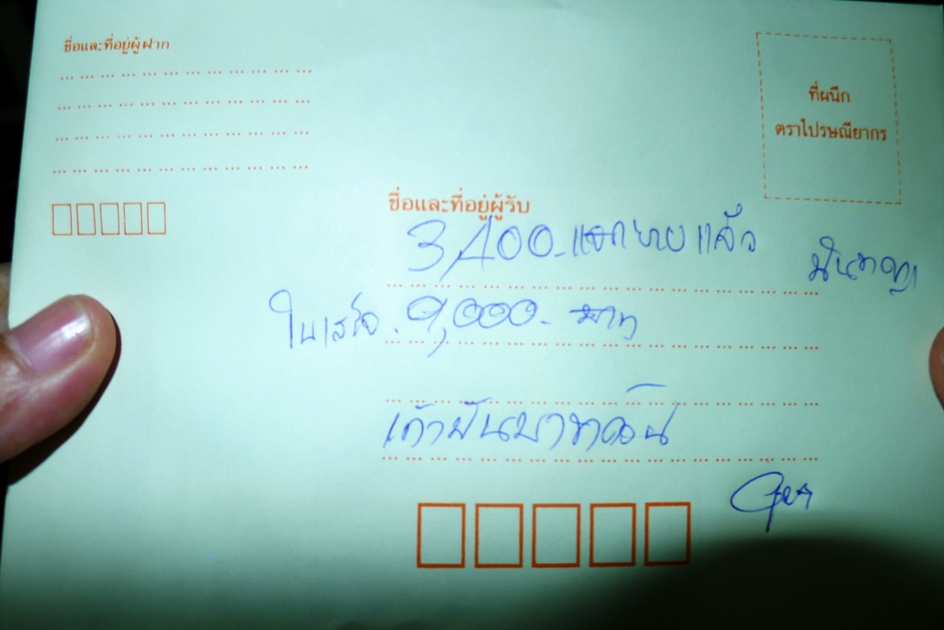 ชื่อและที่อยู่ผู้ฝาก
ที่ผนึก
ตราไปรษณียากร
ชื่อและที่อยู่ผู้รับ
3,100.- แล้ว
ใบเสร็จ. 9,000.- บาท
เก้าพันบาทถ้วน